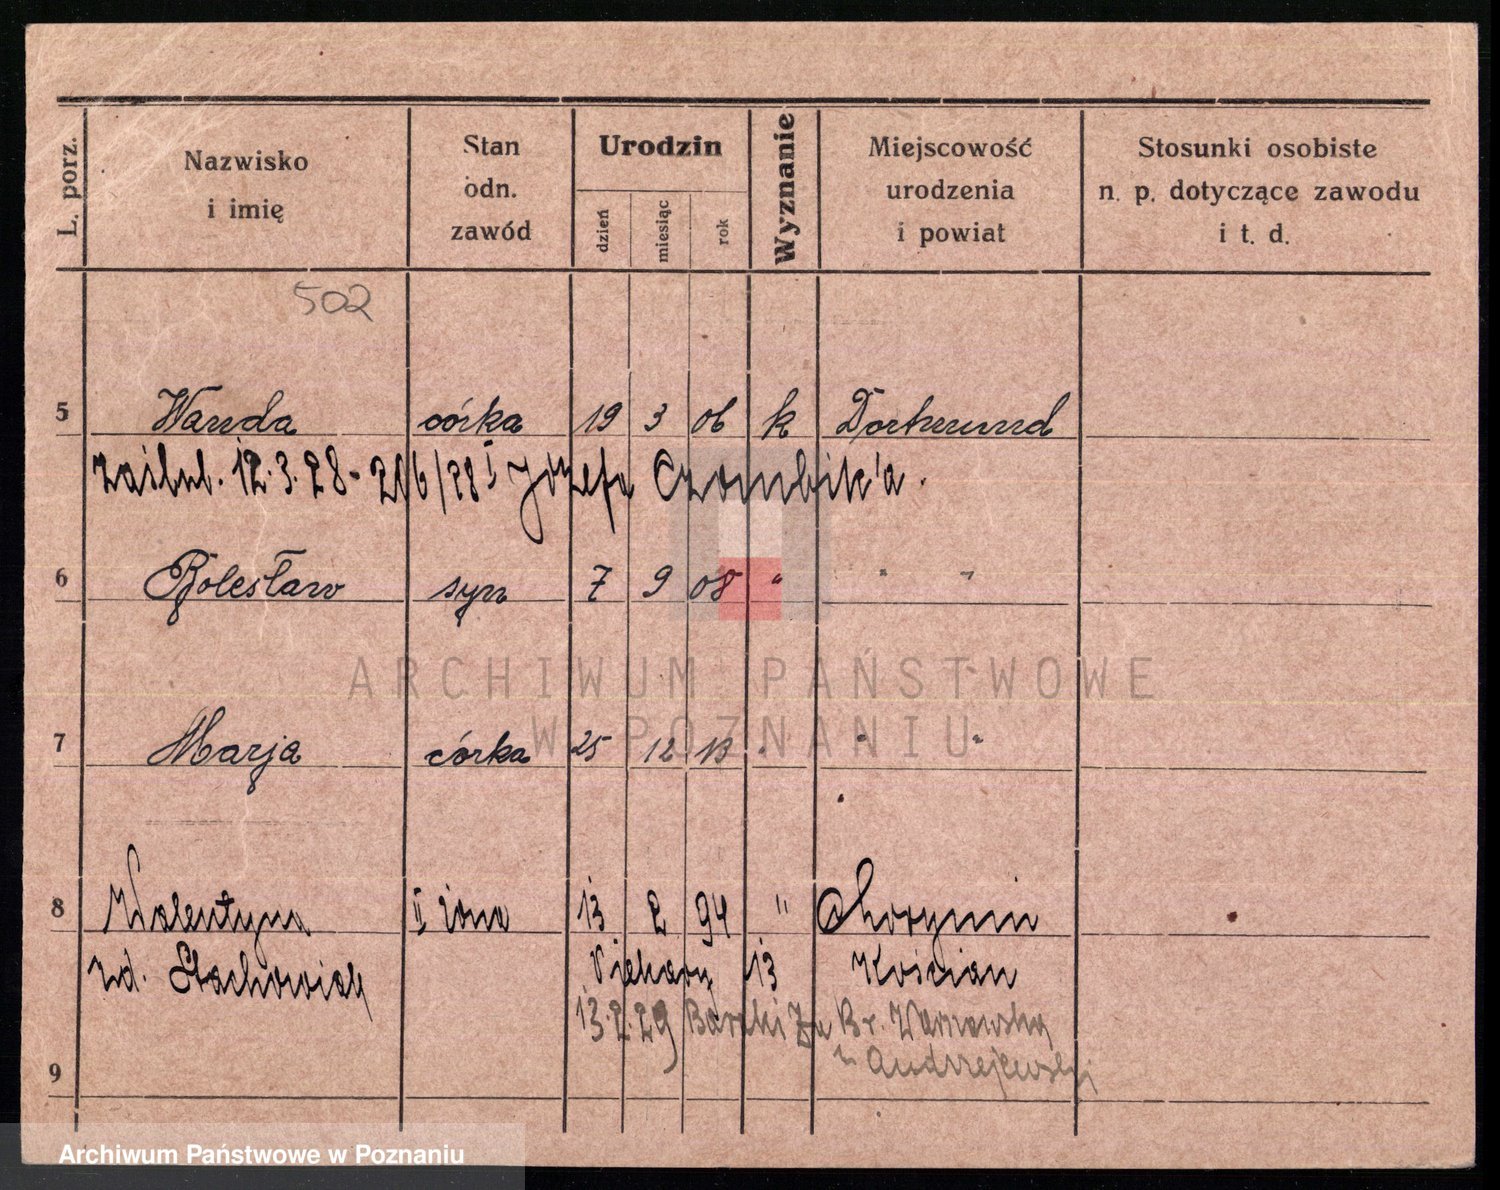 L. porz.
Nazwisko i imię
Stan odn. zawód
Urodzin
dzień miesiąc rok
Wyznanie
Miejscowość urodzenia i powiat
Stosunki osobiste n. p. dotyczące zawodu i t. d.
502
5 Wanda córka 19 3 06 k Dortmund
zaślub. 12.3.28 - 206/28 I Józefa Czombik'a.
6 Bolesław syn 7 9 08 " " "
ARCHIWUM PAŃSTWOWE
W POZNANIU
7 Marja córka 25 12 13 " " "
8 Walentyna II żona 13 2 94 " Choryniu
zd. Stachowiak Piekary 13 Kościan
13.2.29 Br.
Andrzejewski
9
Archiwum Państwowe w Poznaniu